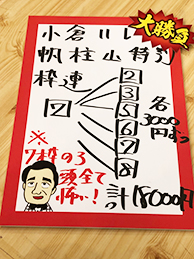 大勝負
小倉11レース
帆柱山特別
枠連
④
2
3
5
6
7
8
各
3000
円ずつ
※
7枠の3
頭全て
怖い!
計18000円